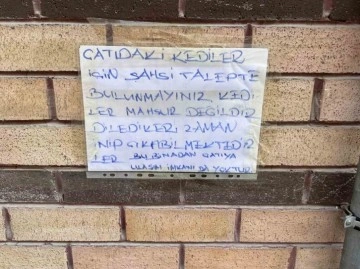 ÇATIDAKİ KEDİLER
İÇİN ŞAHSİ TALEPTE
BULUNMAYINIZ KED
LER MAHSUR DEĞİLDİR
DİLEDİKERİ ZAMAN
İNİP ÇIKABİLMEKTEDİR
LER BALIBMADAN ÇATIYA
ULAŞIM İMKANI DA YOKTUR